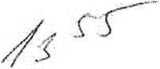 13 55